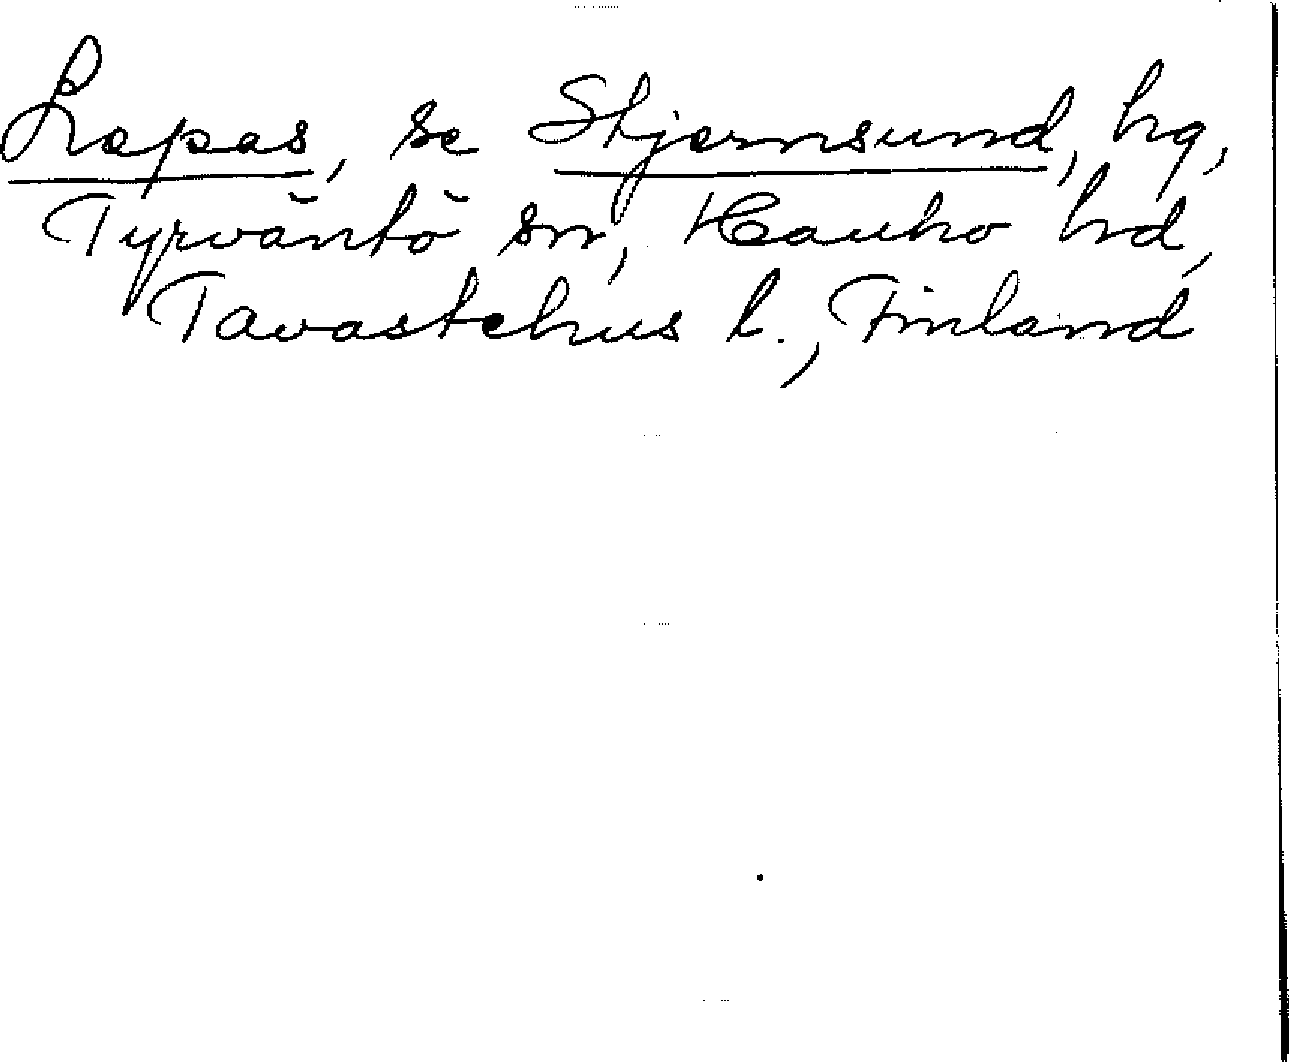 Lepas, se Stjernsund, hg,
Tyrväntö sn, Hauho hd,
Tavastehus l., Finland